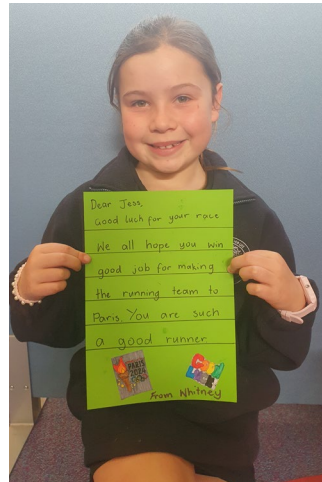 Dear Jess,
Good luch for your race
We all hope you win
good job for making
the running team to
Paris. You are such
a good runner.
PARIS
2024
From Whitney